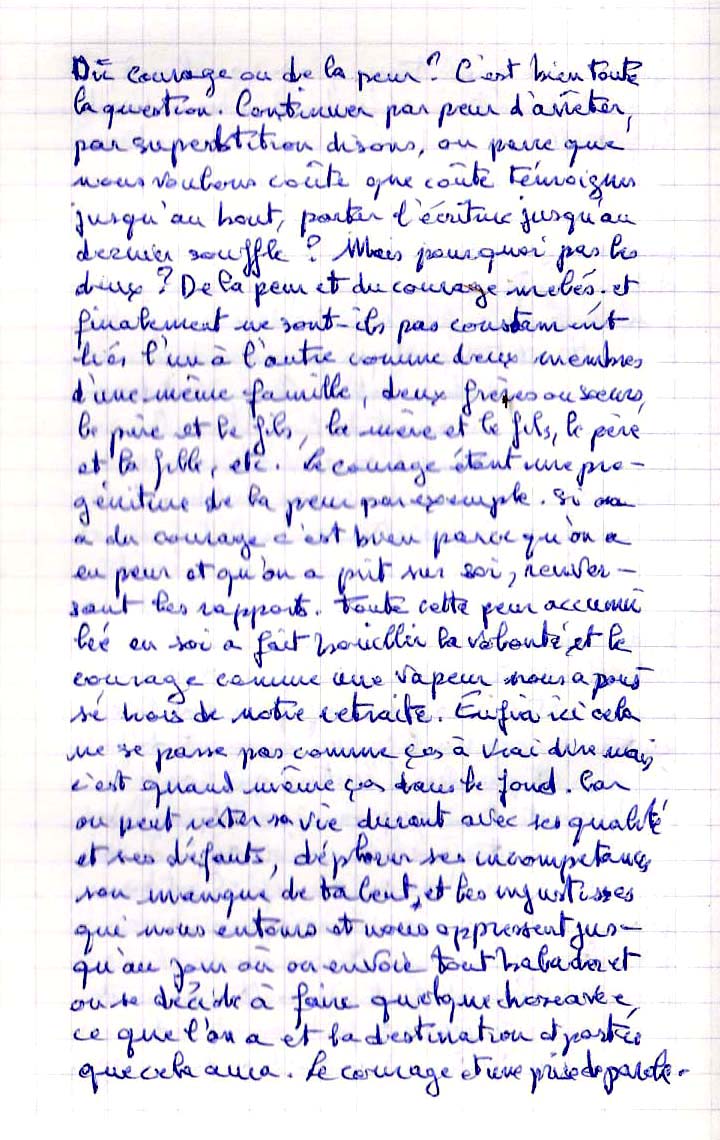 Du courage ou de la peur? C'est bien toute
la question. Continuer par peur d'arrêter,
par superstition disons, ou parce que
nous voulons coûte que coûte témoigner
jusqu'au bout, porter l'écriture jusqu'au
dernier souffle? Mais pourquoi pas les
deux? De la peur et du courage mêlés, et
finalement ne sont-ils pas constamment
liés l'un à l'autre comme deux membres
d'une même famille, deux frères ou sœurs,
le père et le fils, la mère et le fils, le père
et la fille, etc. Le courage étant une pro-
géniture de la peur par exemple. Si on
a du courage c'est bien parce qu'on a
eu peur et qu'on a prit sur soi, renver-
sant les rapports. Toute cette peur accumu
lée en soi a fait bouillir la volonté, et le
courage comme une vapeur nous a pous
sé hors de notre retraite. Enfin ici cela
ne se passe pas comme ças à vrai dire mais
c'est quand même ça dans le fond. Car
on peut rester sa vie durant avec ses qualité
et ses défauts, déplorer ses incompétances
son manque de talent, et les injustisses
qui nous entoure et nous oppressent jus-
qu'au jour où on envoie tout balader et
on se décide à faire quelque chose avec
ce que l'on a et la destination et portée
que cela aura. Le courage et une prise de parole.